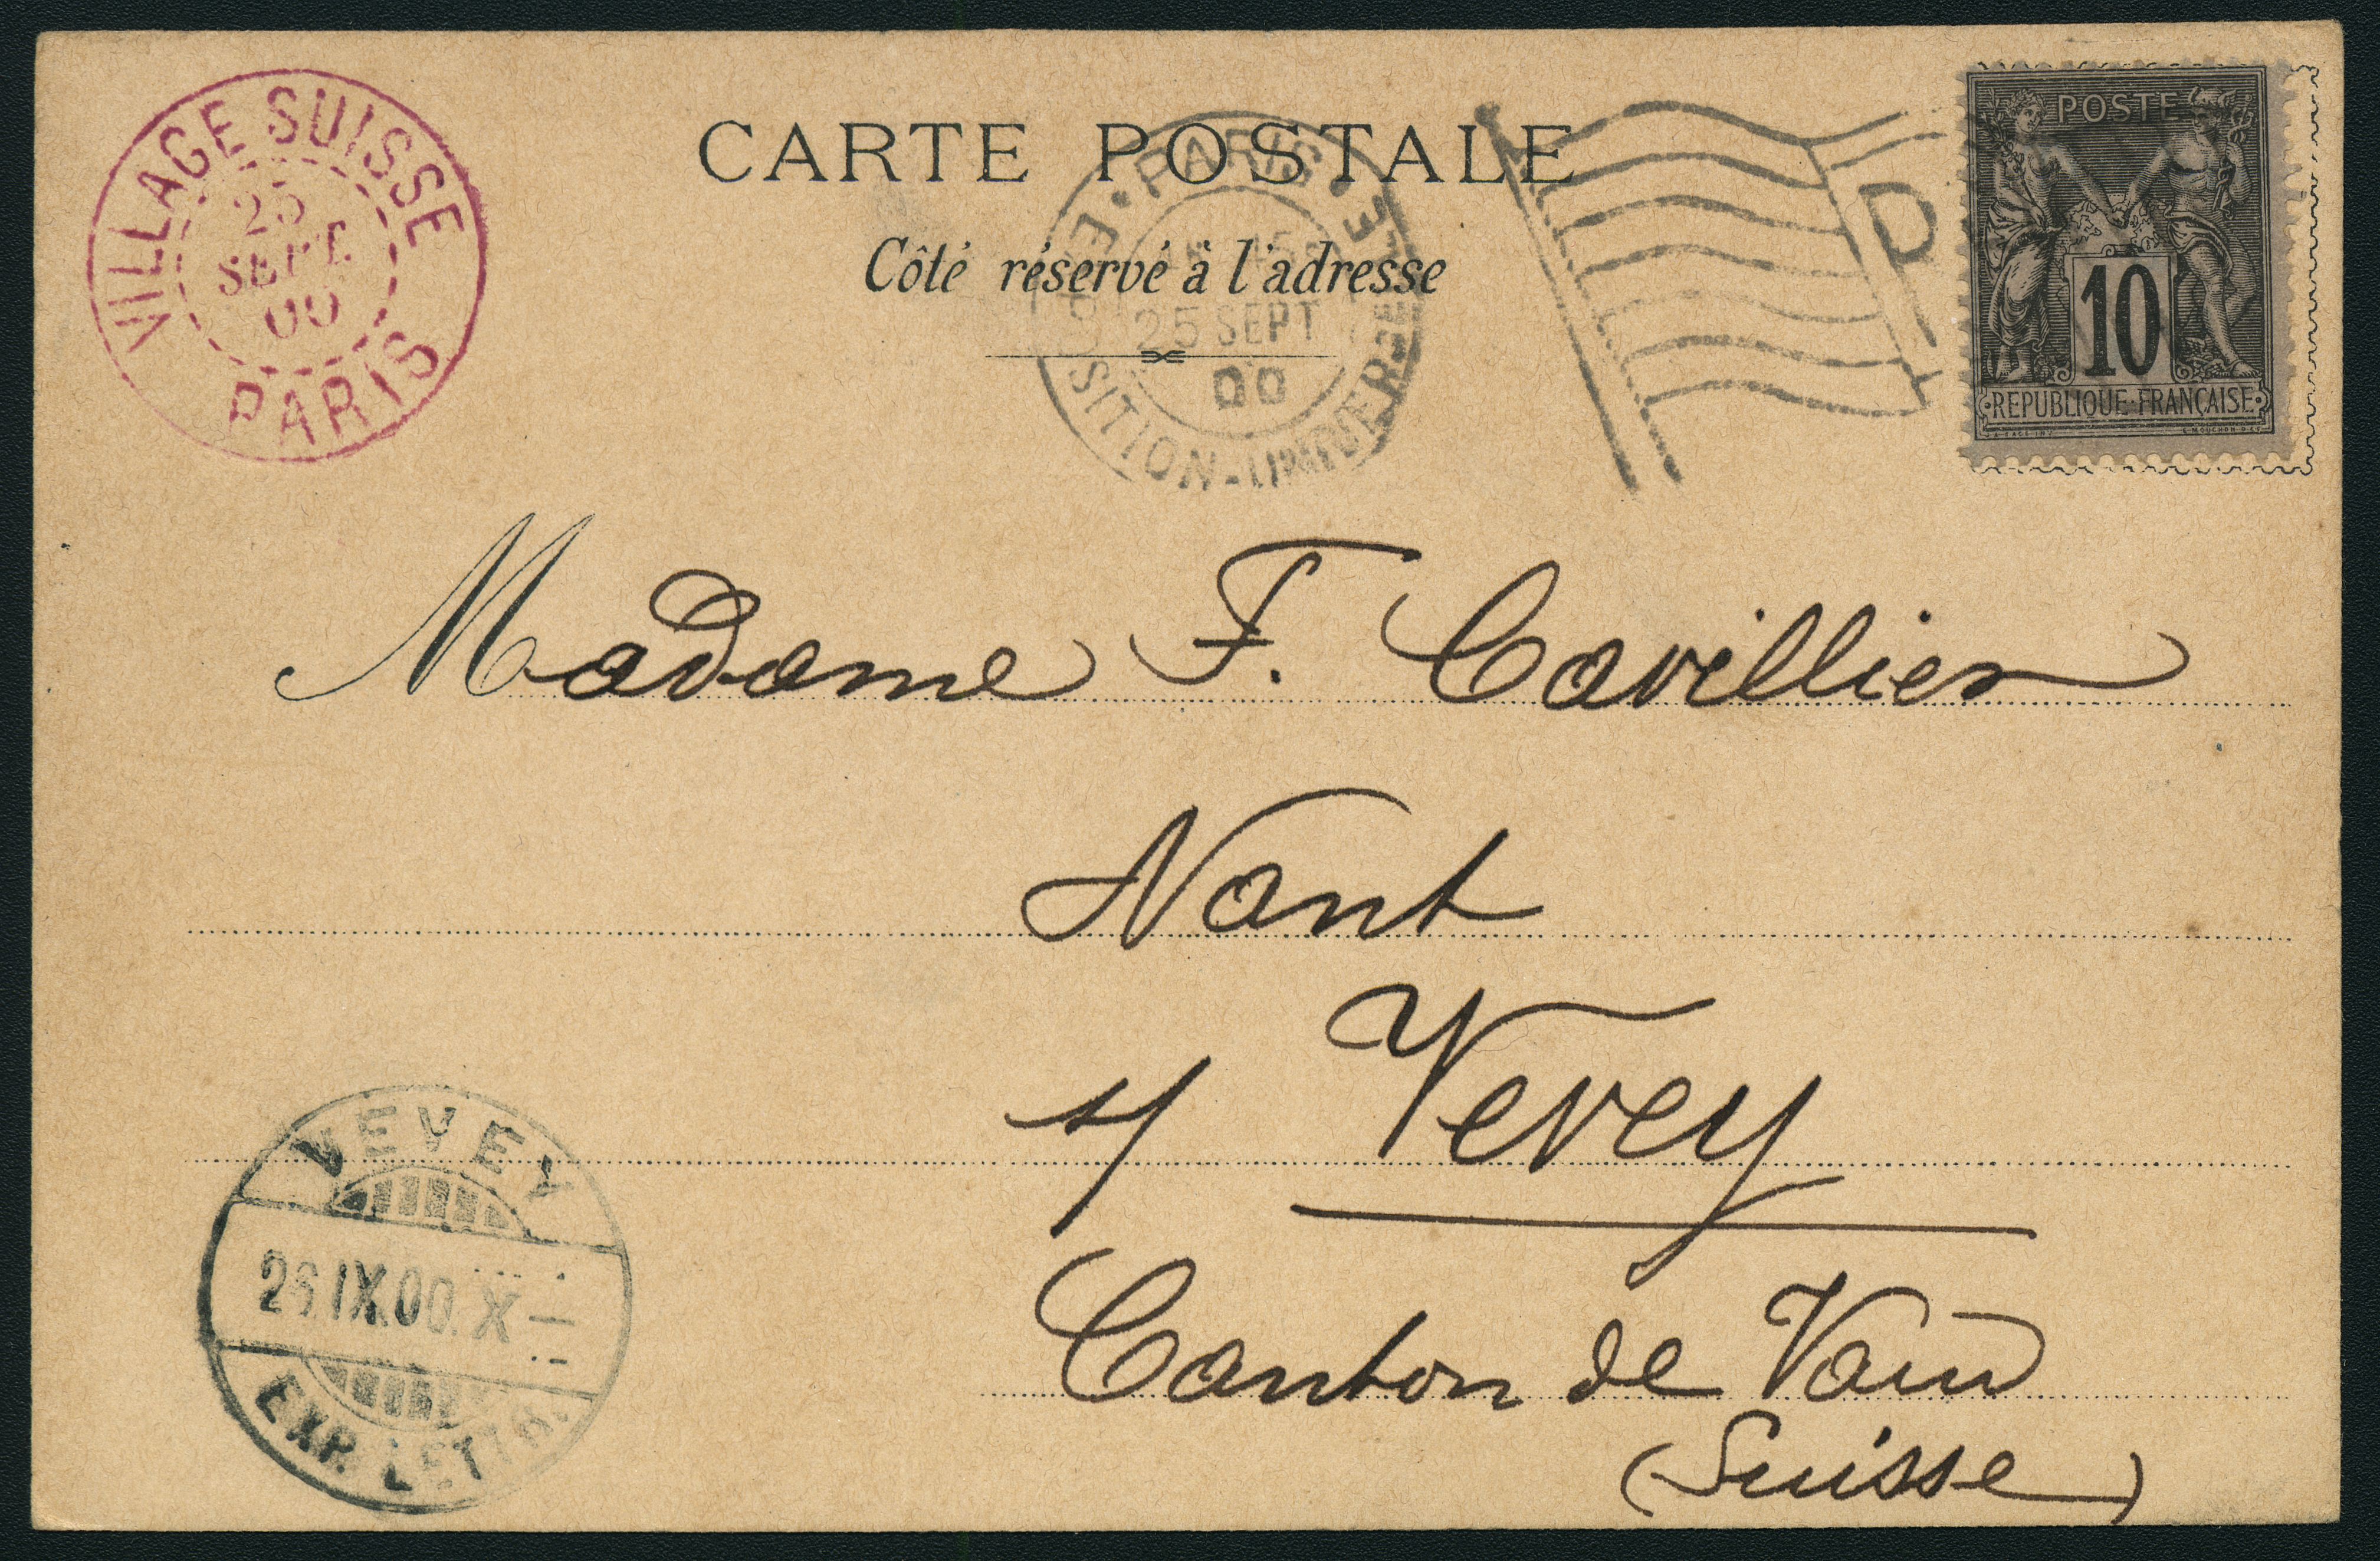 VILLAGE SUISSE
25
SEPT
00
PARIS
CARTE POSTALE
Côté réservé à l'adresse
PARIS
25 SEPT
00
POSTE
10
REPUBLIQUE FRANÇAISE
Madame F. Cavillier
Nant
s/ Vevey
Canton de Vaud
(Suisse)
VEVEY
26.IX.00.X
EXP. LETT